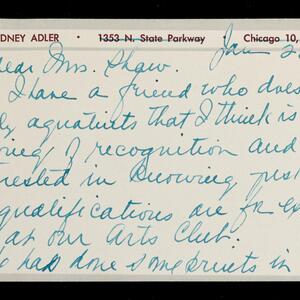 DNEY ADLER • 1353 N. State Parkway • Chicago 10,
Jan 2
ear Mrs. Shaw.
I have a friend who does
ly aquatints that I think is
of recognition and
rested in Knowing just
qualifications are for ex
at our Arts Club.
had done some prints in